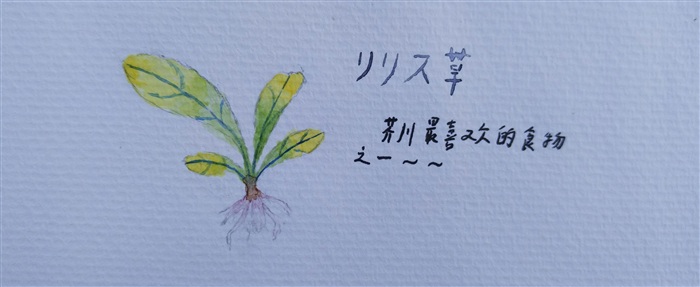 リリス草
芥川最喜欢的食物
之一~~